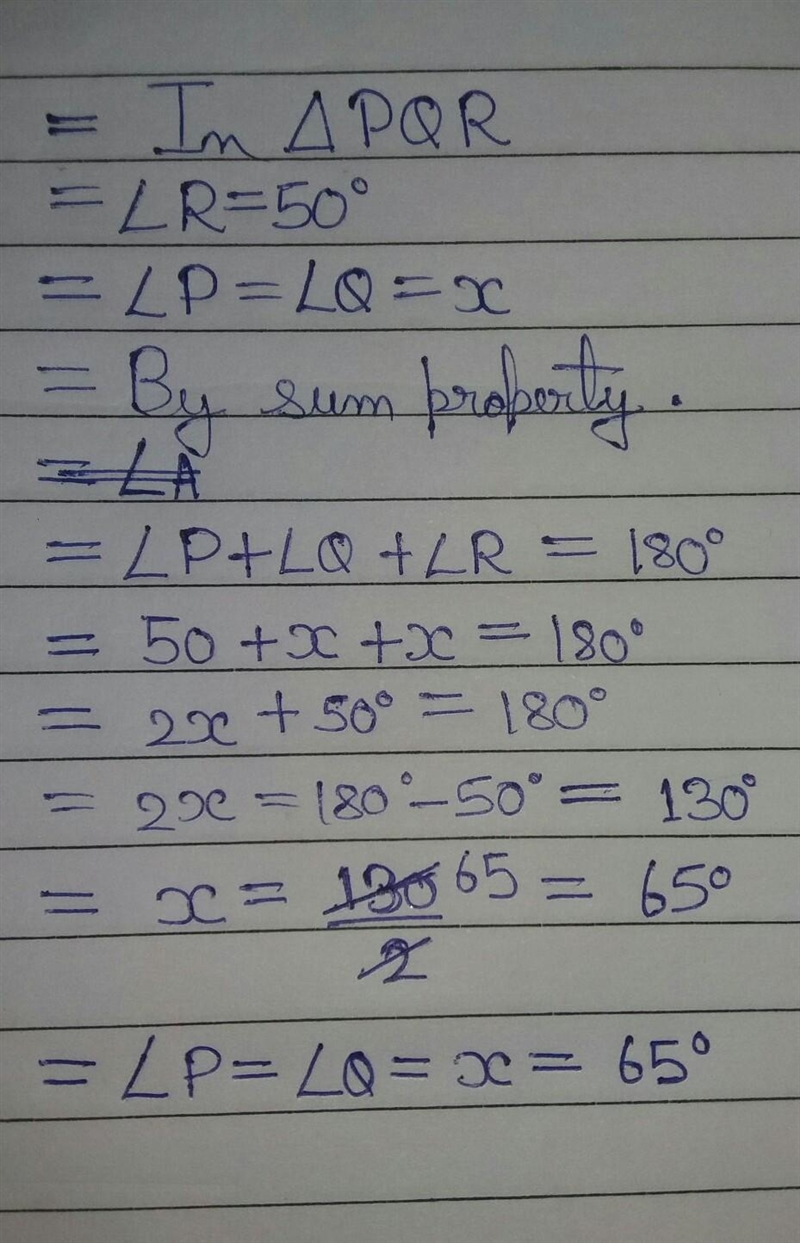 = In △PQR
= ∠R=50°
= ∠P=∠Q=x
= By sum property.
= ∠A
= ∠P+∠Q+∠R = 180°
= 50+x+x=180°
= 2x+50°=180°
= 2x=180°-50°= 130°
= x= 130 65 = 65°
2
= ∠P=∠Q=x= 65°